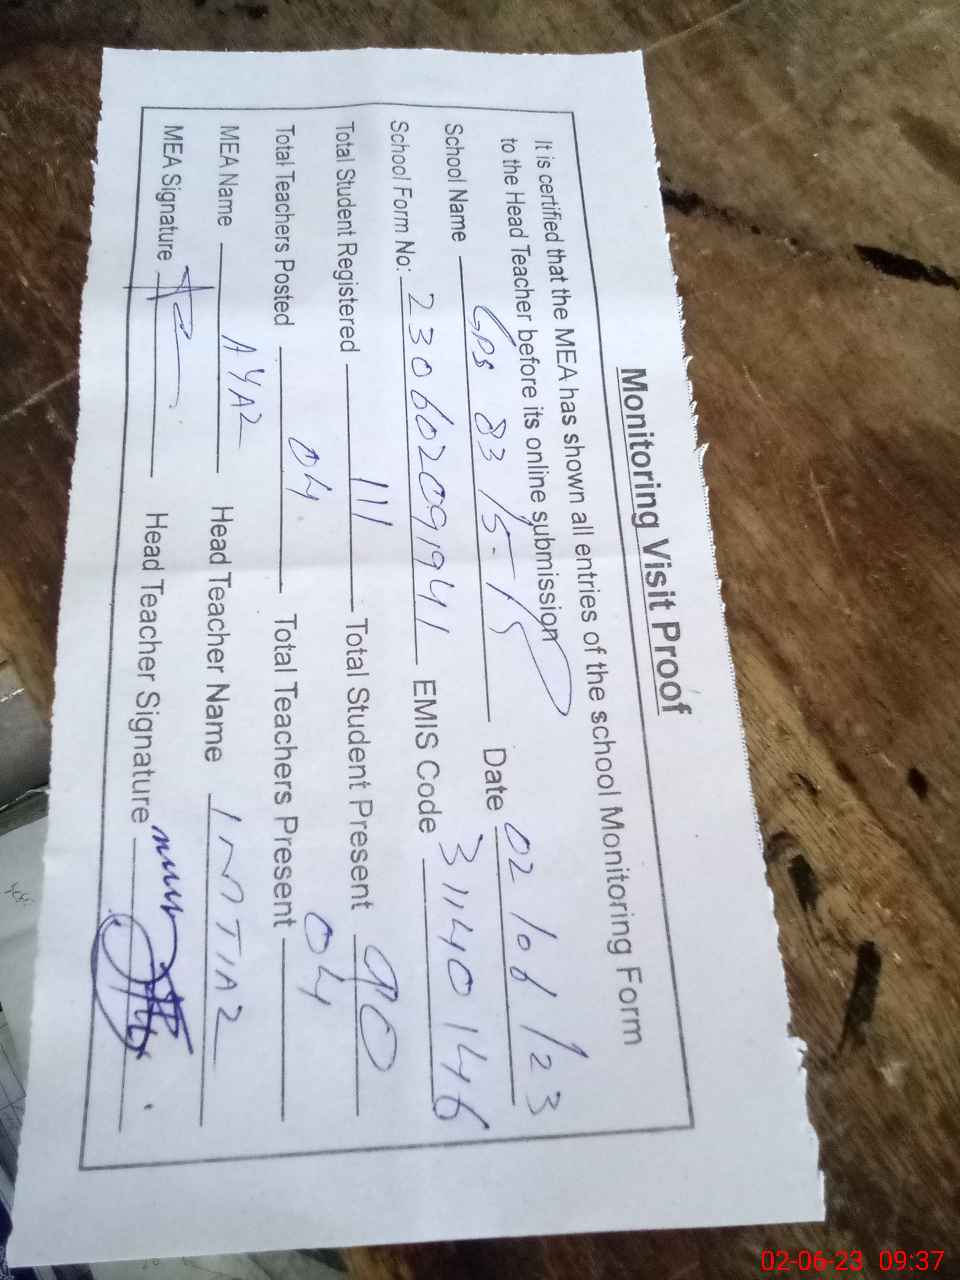 Monitoring Visit Proof
It is certified that the MEA has shown all entries of the school Monitoring Form
to the Head Teacher before its online submission
School Name GPS 83/5-L Date 02/06/23
School Form No: 230602091941 EMIS Code 31140146
Total Student Registered 111 Total Student Present 90
Total Teachers Posted 04 Total Teachers Present 04
MEA Name AYAZ Head Teacher Name IMTIAZ
MEA Signature Head Teacher Signature
02-06-23 09:37